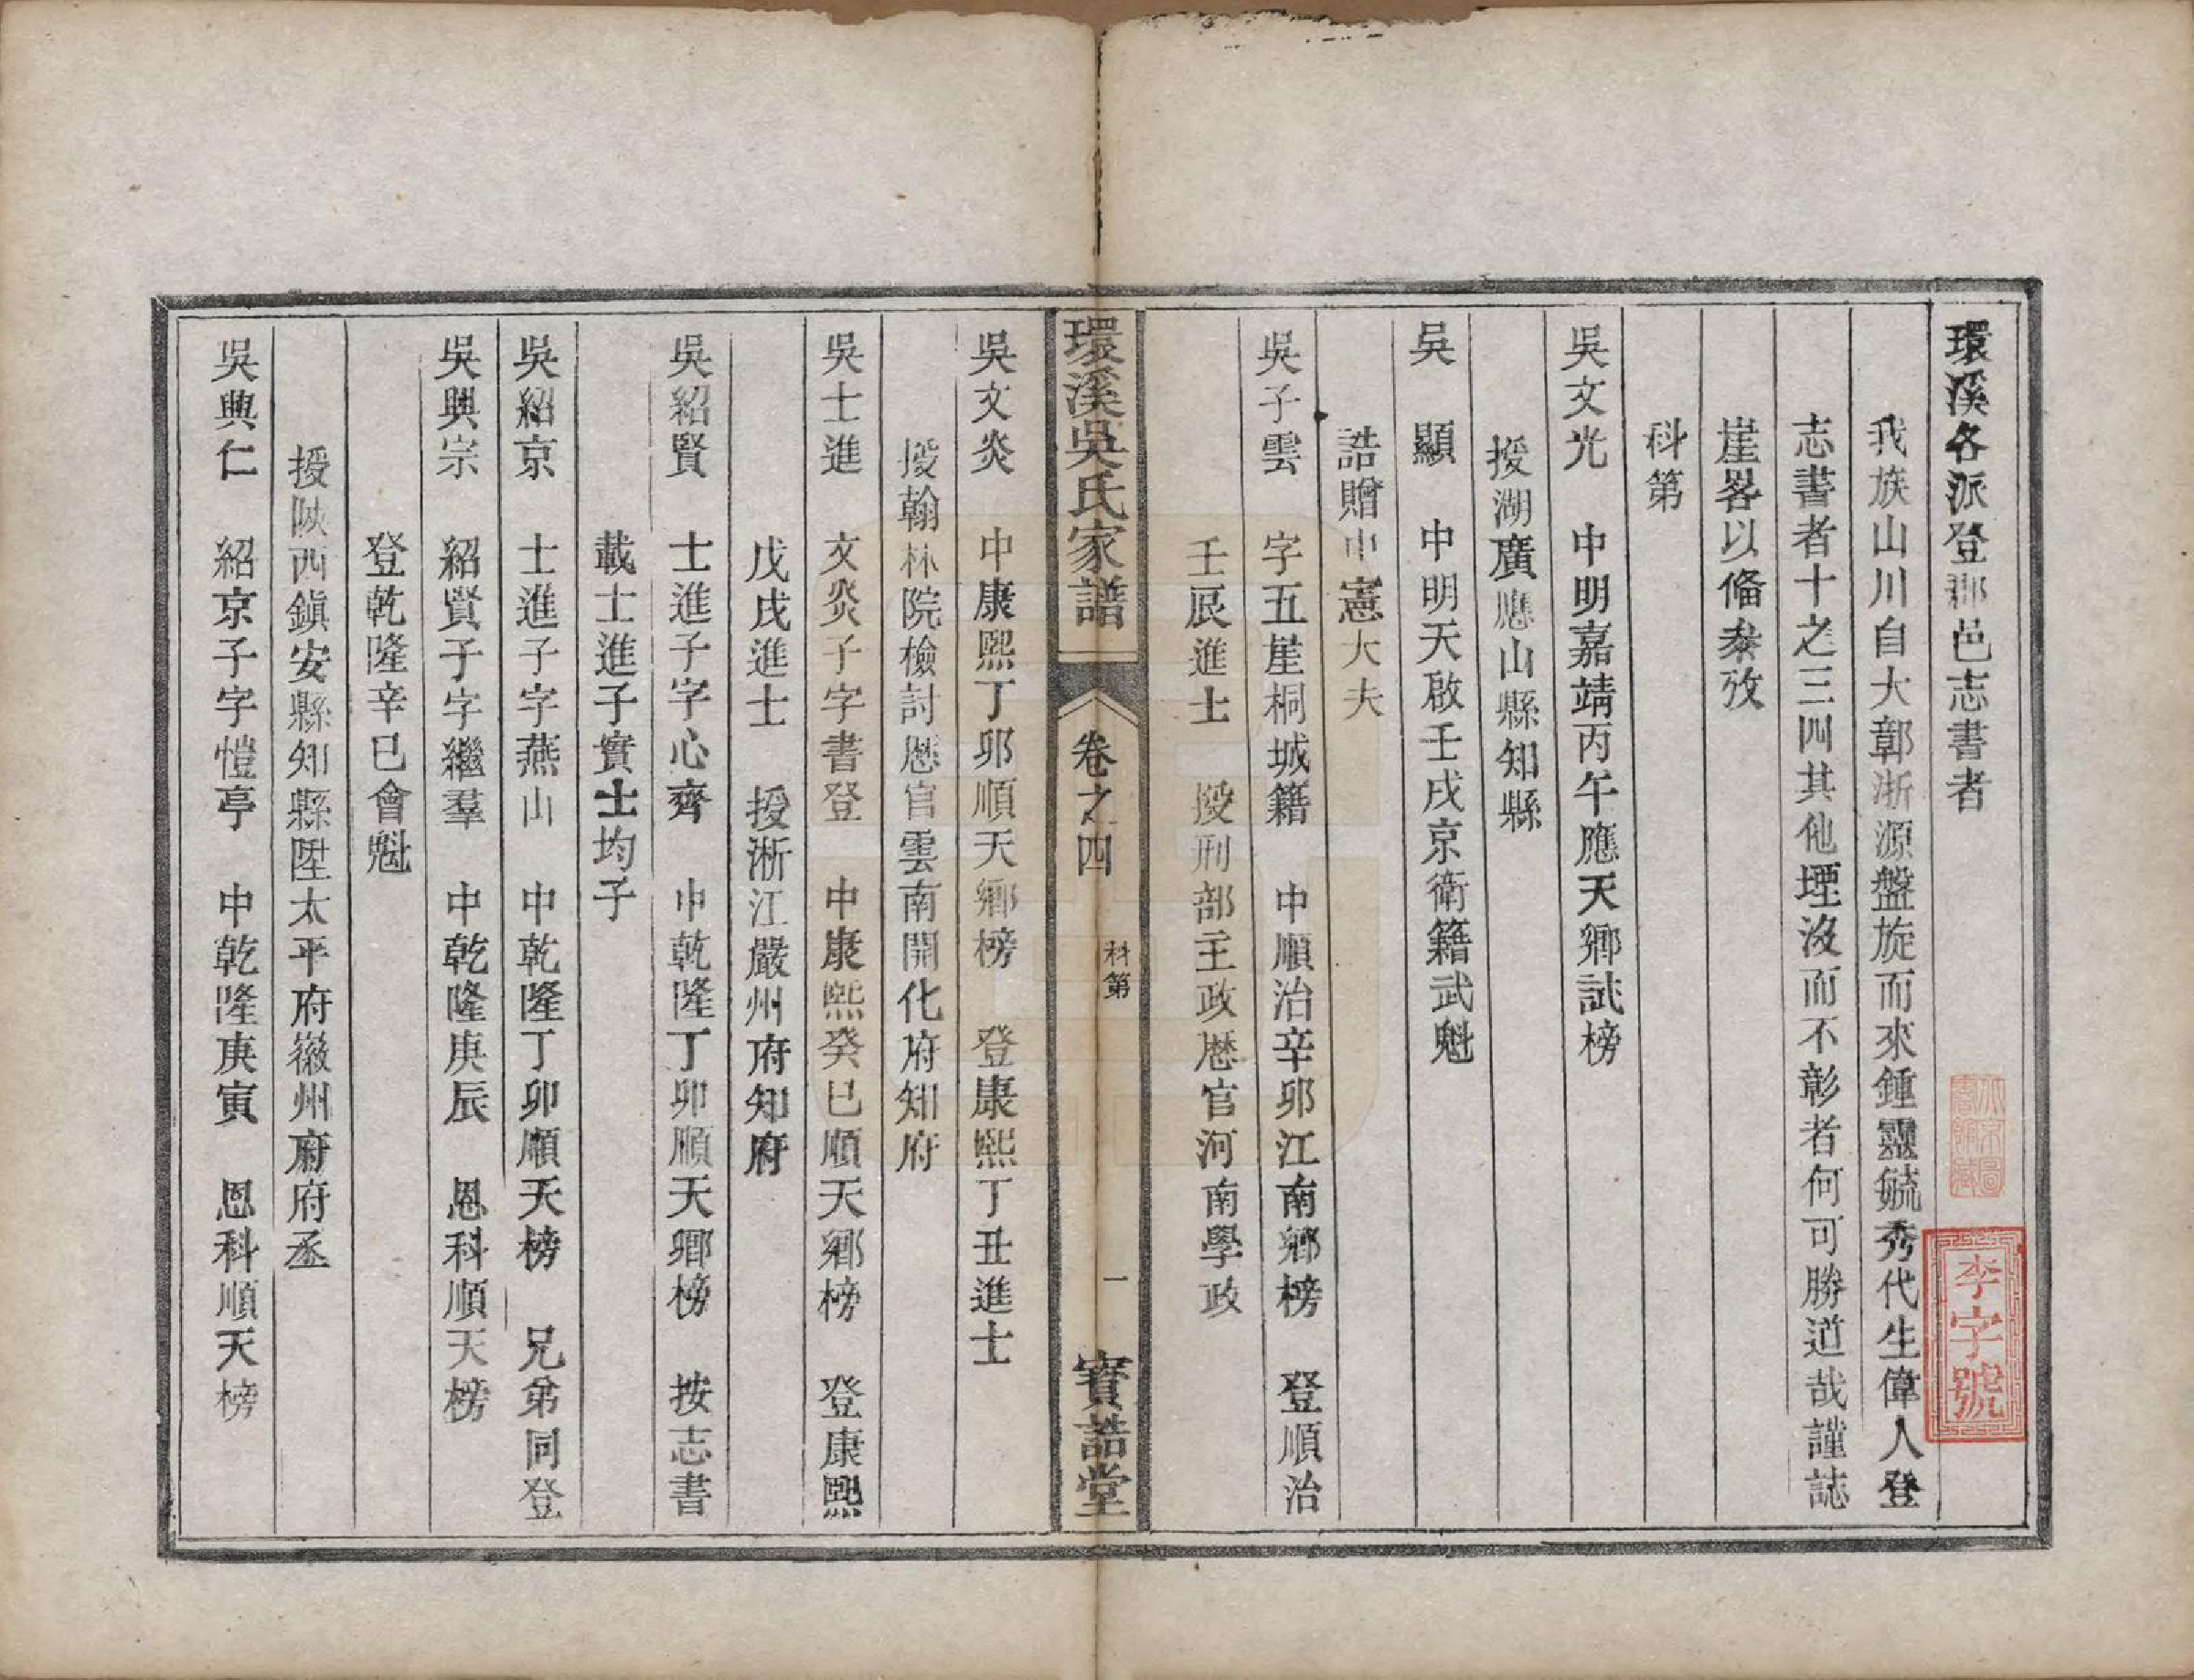 環溪各派登郡邑志書者
我族山川自大鄣浙源盤旋而來鍾靈毓秀代生偉人登
志書者十之三四其他堙沒而不彰者何可勝道哉謹誌
崖畧以備叅攷
科第
吳文光　中明嘉靖丙午應天鄉試榜
授湖廣應山縣知縣
吳　顯　中明天啟壬戌京衛籍武魁
誥贈中憲大夫
吳子雲　字五崖桐城籍　中順治辛卯江南鄉榜　登順治
壬辰進士　授刑部主政歷官河南學政
環溪吳氏家譜　卷之四　科第　一　寶誥堂
吳文炎　中康熙丁卯順天鄉榜　登康熙丁丑進士
授翰林院檢討歷官雲南開化府知府
吳士進　文炎子字書登　中康熙癸巳順天鄉榜　登康熙
戊戌進士　授淅江嚴州府知府
吳紹賢　士進子字心齊　中乾隆丁卯順天鄉榜　按志書
載士進子實士均子
吳紹京　士進子字燕山　中乾隆丁卯順天榜　兄弟同登
吳興宗　紹賢子字繼羣　中乾隆庚辰　恩科順天榜
登乾隆辛巳會魁
授陝西鎮安縣知縣陞太平府徽州府府丞
吳興仁　紹京子字愷亭　中乾隆庚寅　恩科順天榜
李字號